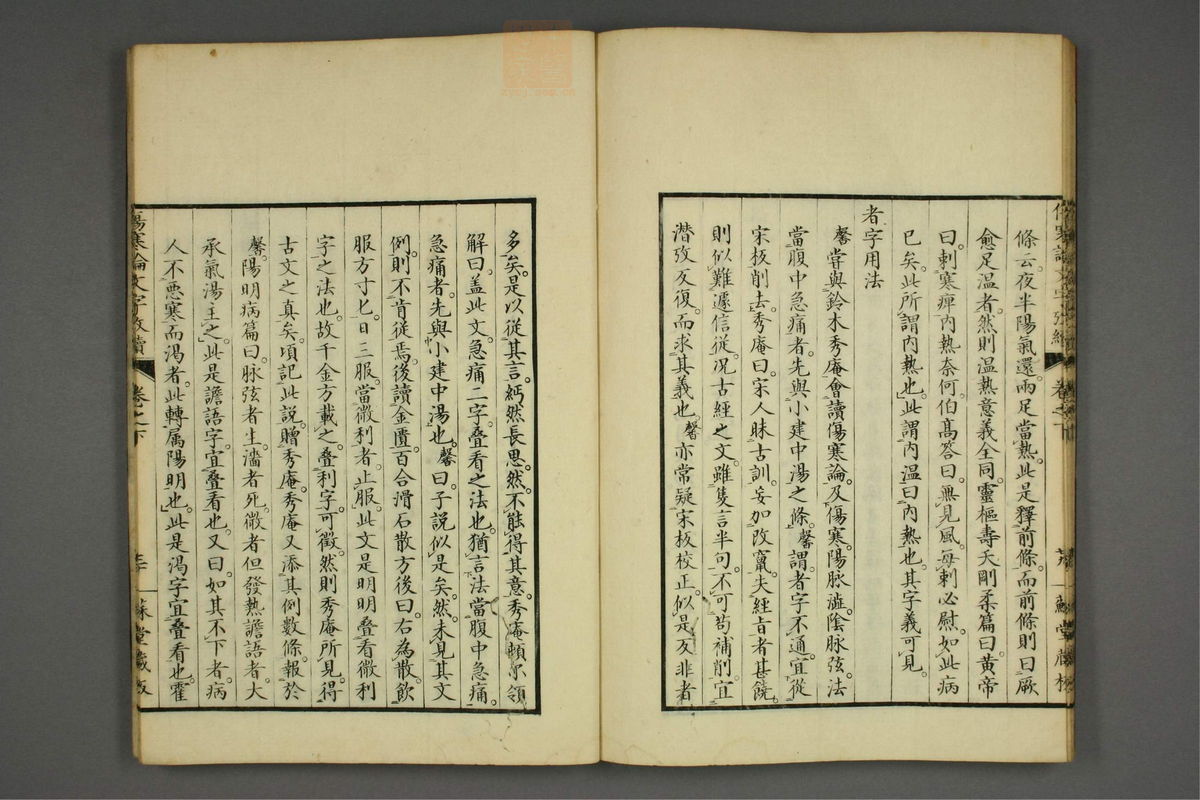 條云夜半陽氣還。兩足當熱。此是釋前條。而前條則曰厥
愈足温者。然則温熱意義全同。靈樞壽夭剛柔篇曰。黃帝
曰。刺寒痺內熱奈何。伯高答曰。無見風。每刺必熨。如此病
已矣。此所謂內熱也。此謂內温曰內熱也。其字義可見
者字用法
馨嘗與鈴木秀庵會讀傷寒論。及傷寒陽脉澁。陰脉弦。法
當腹中急痛者。先與小建中湯之條。馨謂者字不通。宜從
宋板削去。秀庵曰。宋人昧古訓。妄加改竄。失經旨者甚饒。
則似難遽信從。况古經之文。雖隻言半句。不可苟補削。宜
潛攷反復。而求其義也。馨亦常疑宋板校正。似是反非者
多矣。是以從其言。沔然長思。然不能得其意。秀庵頓尔領
解曰。盖此文。急痛二字。疊看之法也。猶言法當腹中急痛。
急痛者。先與小建中湯也。馨曰。子說似是矣。然未見其文
例。則不肯從焉。後讀金匱百合滑石散方後曰。右為散。飲
服方寸匕。日三服。當微利者。止服。此文是明明疊看微利
字之法也。故千金方載之。疊利字可徵。然則秀庵所見。得
古文之真矣。項記此說贈秀庵。秀庵又添其例數條。報於
馨。陽明病篇曰。脉弦者生。濇者死。微者但發熱譫語者。大
承氣湯主之。此是譫語字。宜疊看也。又曰。如其不下者。病
人不惡寒而渴者。此轉属陽明也。此是渴字宜疊看也。霍
傷寒論文字攷續
卷之下
蘇堂藏板